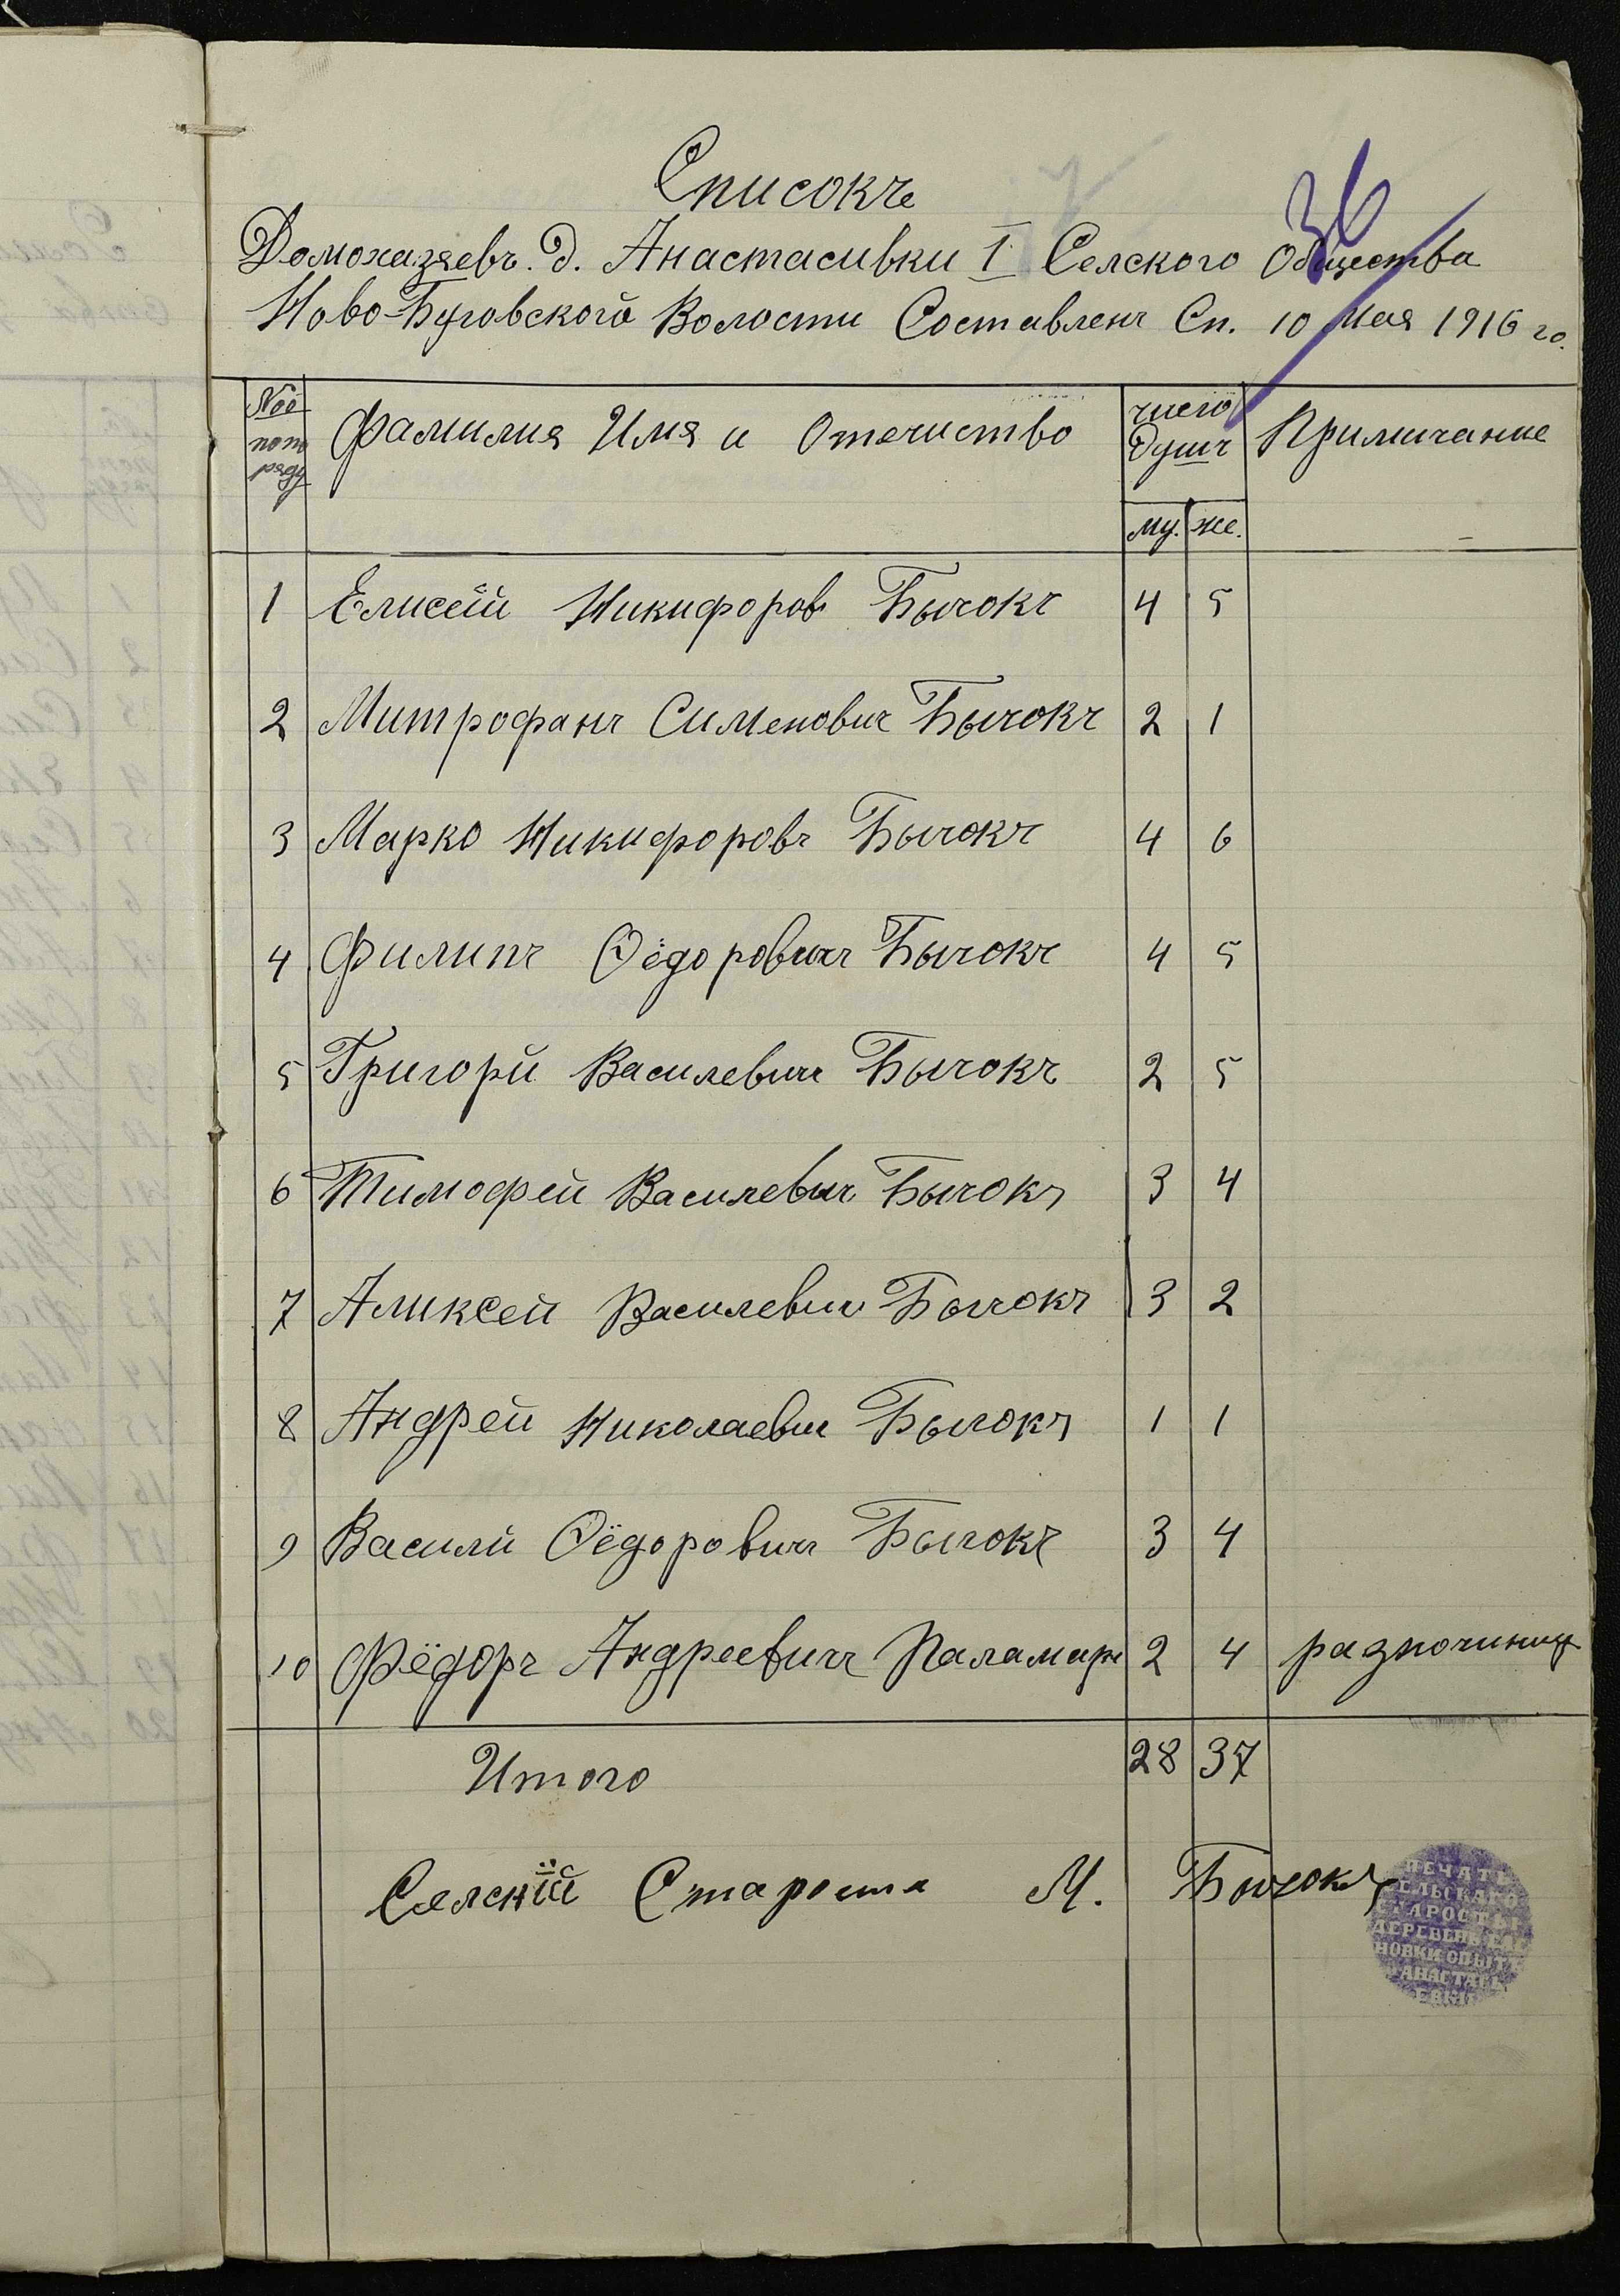 Списокъ
36
Домохазяевъ. д. Анастасивки I Селского Общества
Ново-Буговской Волости Составленъ Сп. 10 Мая 1916 го.
№ по пораду Фамилия Имя и Отечиство число душъ Примичание
му. же.
1 Елисей Никифоров Бычокъ 4 5
2 Митрофанъ Сименович Бычокъ 2 1
3 Марко Никифоровъ Бычокъ 4 6
4 Филипъ Ѳёдоровичъ Бычокъ 4 5
5 Григорй Василевич Бычокъ 2 5
6 Тимофей Василевич Бычокъ 3 4
7 Аликсей Василевич Бычокъ 3 2
8 Андрей Николаевич Бычокъ 1 1
9 Василй Ѳёдоровичъ Бычокъ 3 4
10 Фёдоръ Андреевичъ Паламарь 2 4 разночинец
Итого 28 37
Селскій Староста М. Бычокъ
ПЕЧАТЬ
СЕЛЬСКАГО
СТАРОСТЫ
ДЕРЕВЕНЬ
НОВКИ ОПЫТ
АНАСТАСЬ
ЕВКИ